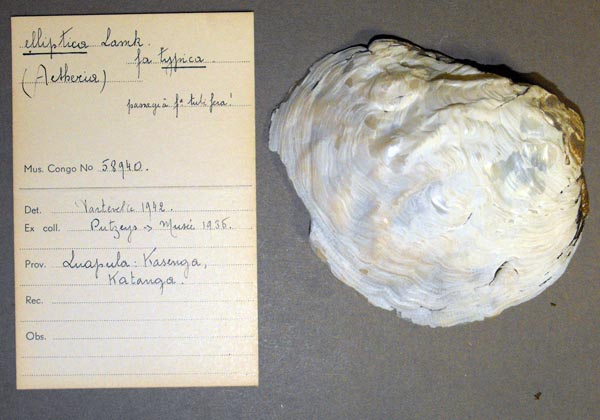 elliptica Lamk.
fa typica
(Aetheria)
passage à fa tubifera!
Mus. Congo No 58940.
Det. 1942.
Ex coll. Putzeys → Musée 1936.
Prov. Luapula: Kasenga,
Katanga.
Rec.
Obs.